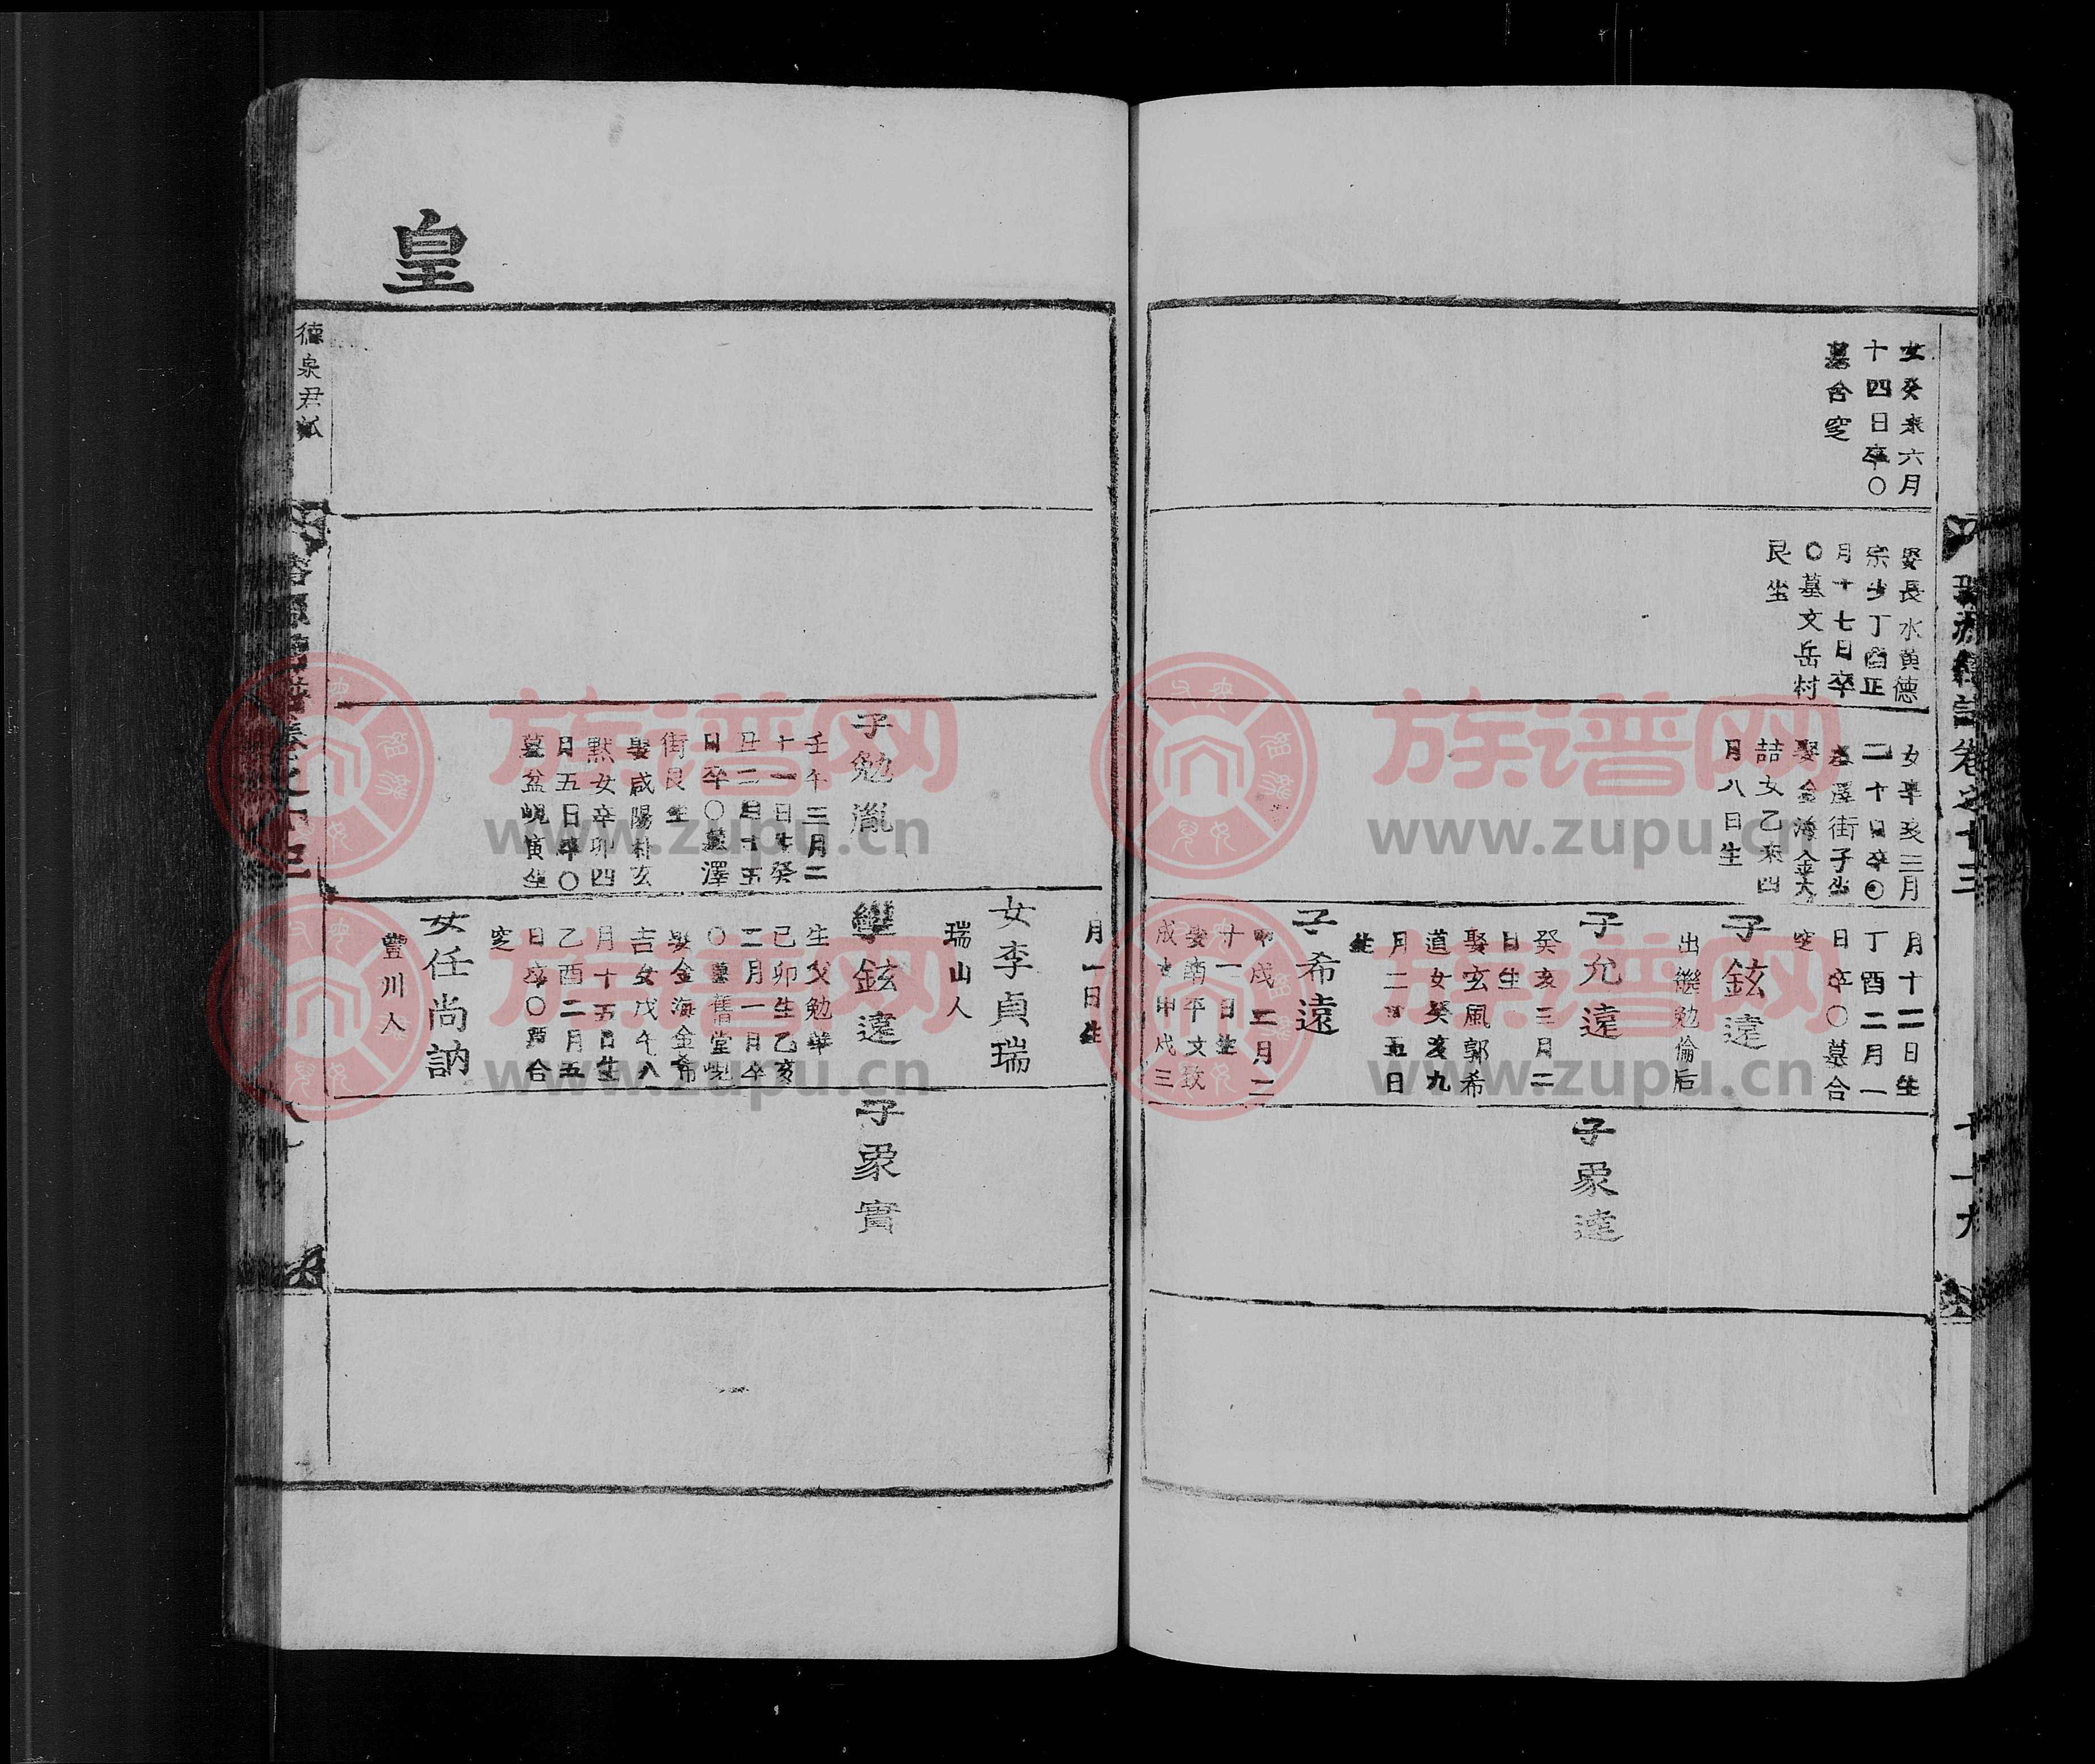 女癸未六月
十四日卒〇
墓合窆
娶長水黃德
宗女丁酉正
月十七日卒
〇墓文岳村
艮坐
女辛亥三月
二十日卒〇
墓澤街子坐
娶金海金大
喆女乙未四
月八日生
月十二日生
丁酉二月一
日卒〇墓合
窆
子鉉遠
出繼勉倫后
子允遠
癸亥三月二
日生
娶玄風郭希
道女癸亥九
月二十五日
生
子希遠
甲戌二月二
十一日生
娶南平文致
成女甲戌三
子衆達
璿源續譜卷之十三
七十九
皇
月一日生
女李貞瑞
瑞山人
子勉胤
壬午三月二
十一日生癸
丑二月十五
日卒〇墓澤
街艮坐
娶咸陽朴玄
默女辛卯四
月五日卒〇
墓盆峴寅坐
繼鉉遠
生父勉華
己卯生乙亥
二月一日卒
〇墓舊堂峴
娶金海金希
吉女戊午八
月十五日生
乙酉二月五
日卒〇墓合
窆
女任尚訥
豐川人
子衆實
德泉君派